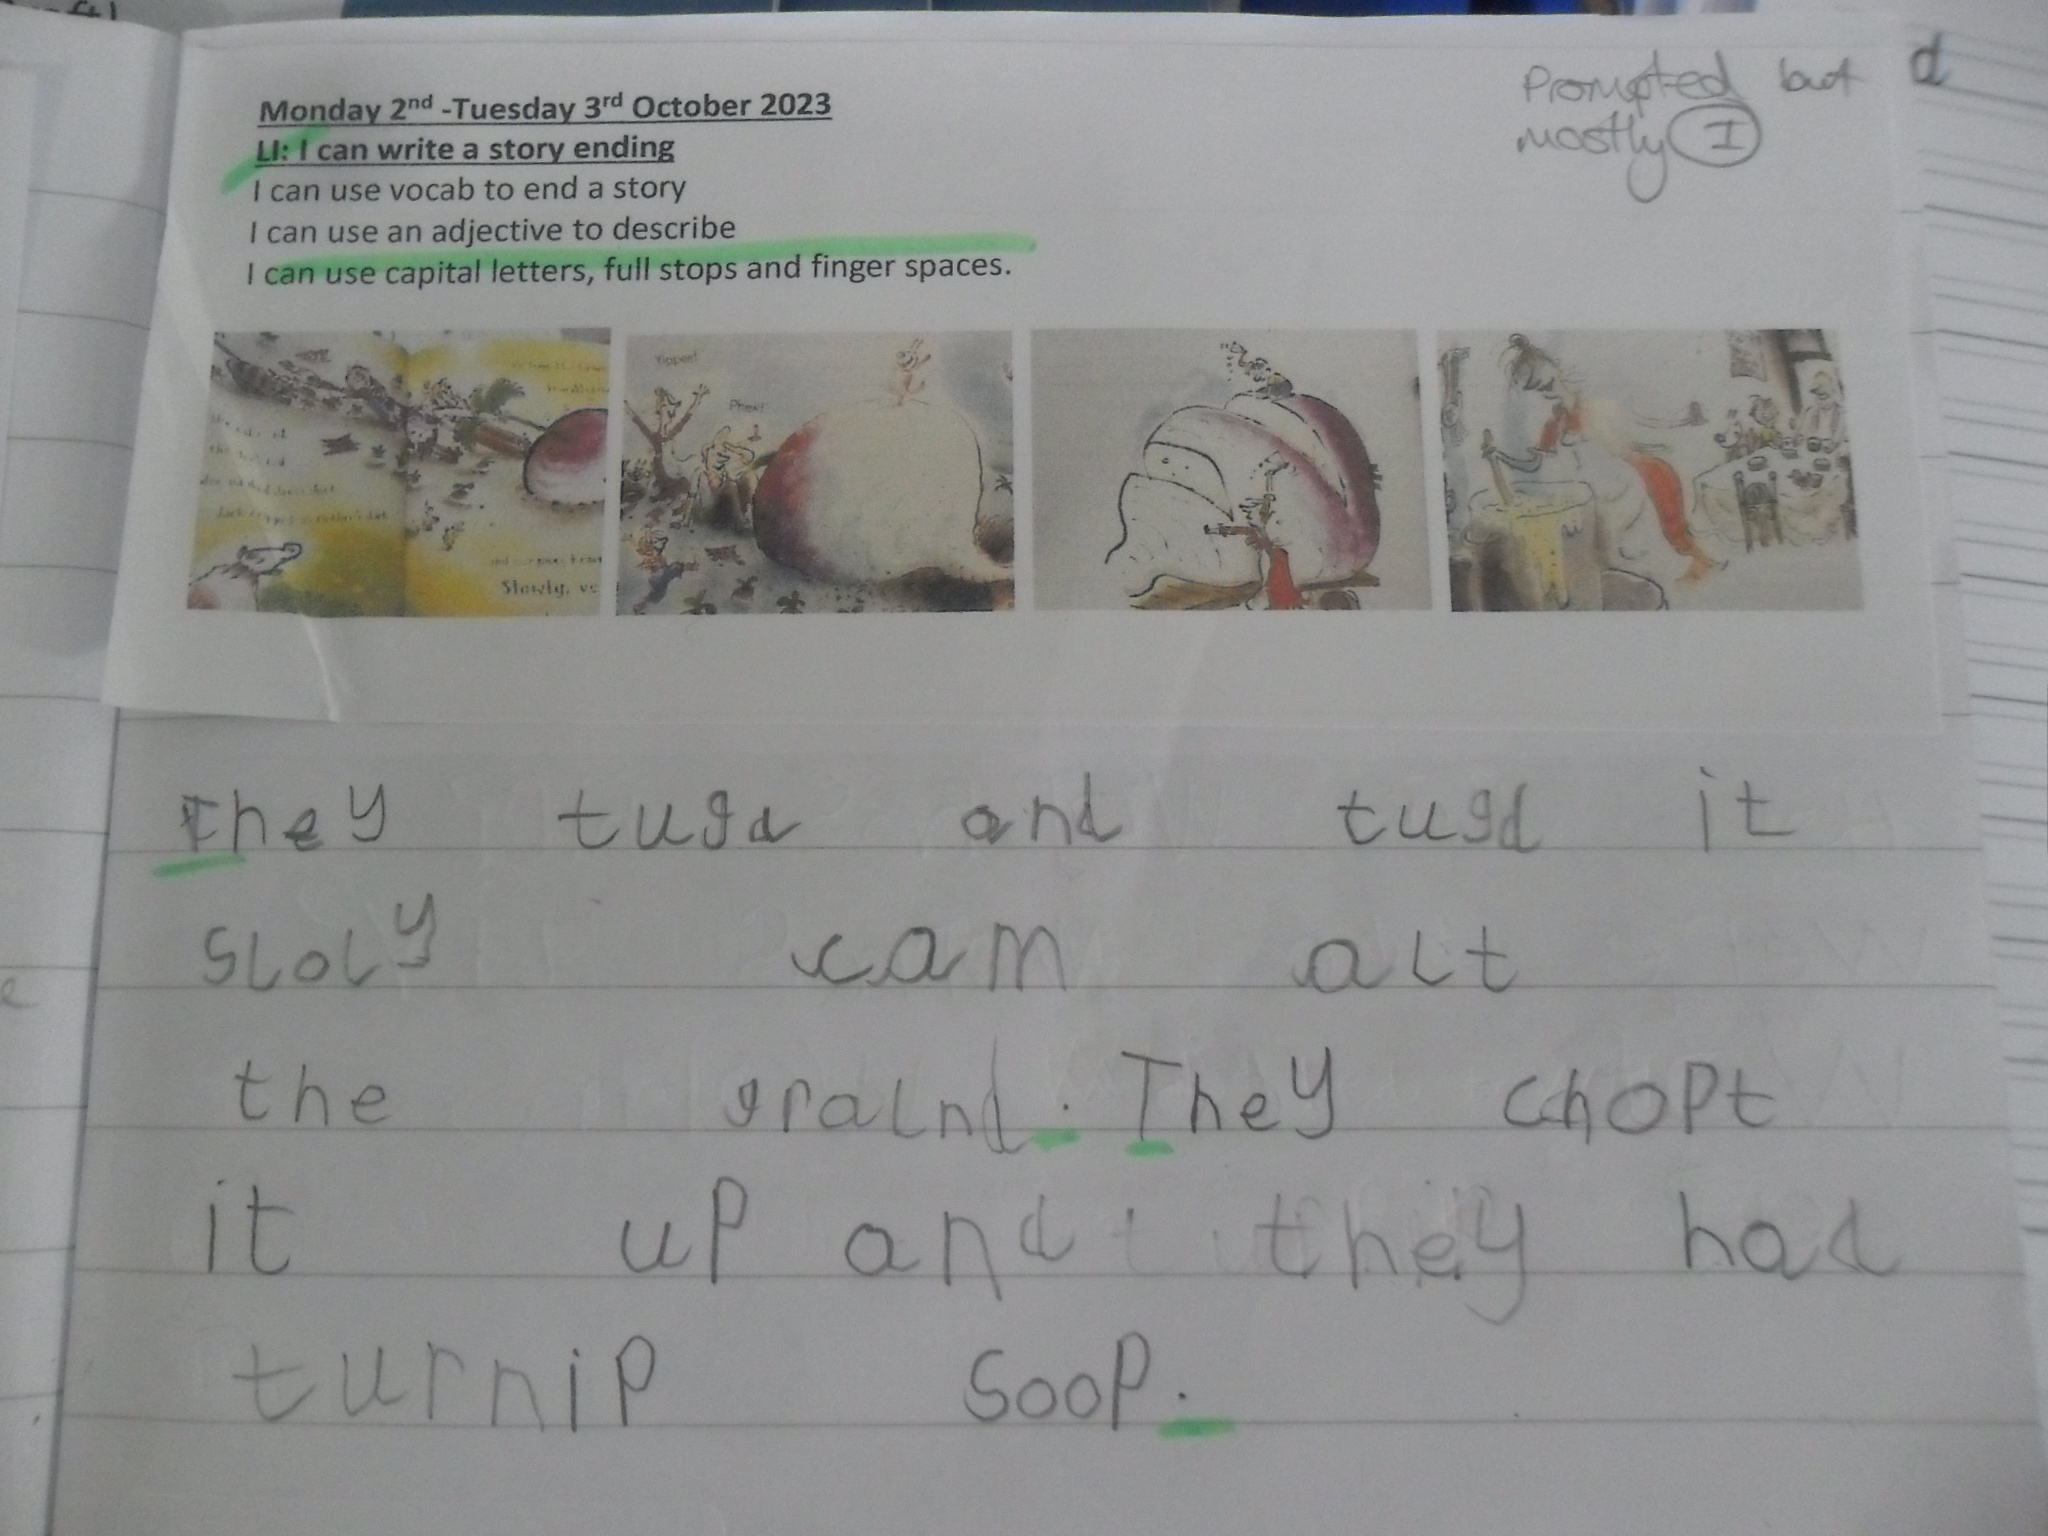 Monday 2nd -Tuesday 3rd October 2023
LI: I can write a story ending
I can use vocab to end a story
I can use an adjective to describe
I can use capital letters, full stops and finger spaces.
Prompted but
mostly I
d
Yippee!
Phew!
Slowly, ve
They tugd and tugd it
sloly cam alt
the gralnd. They chopt
it up and they had
turnip soop.